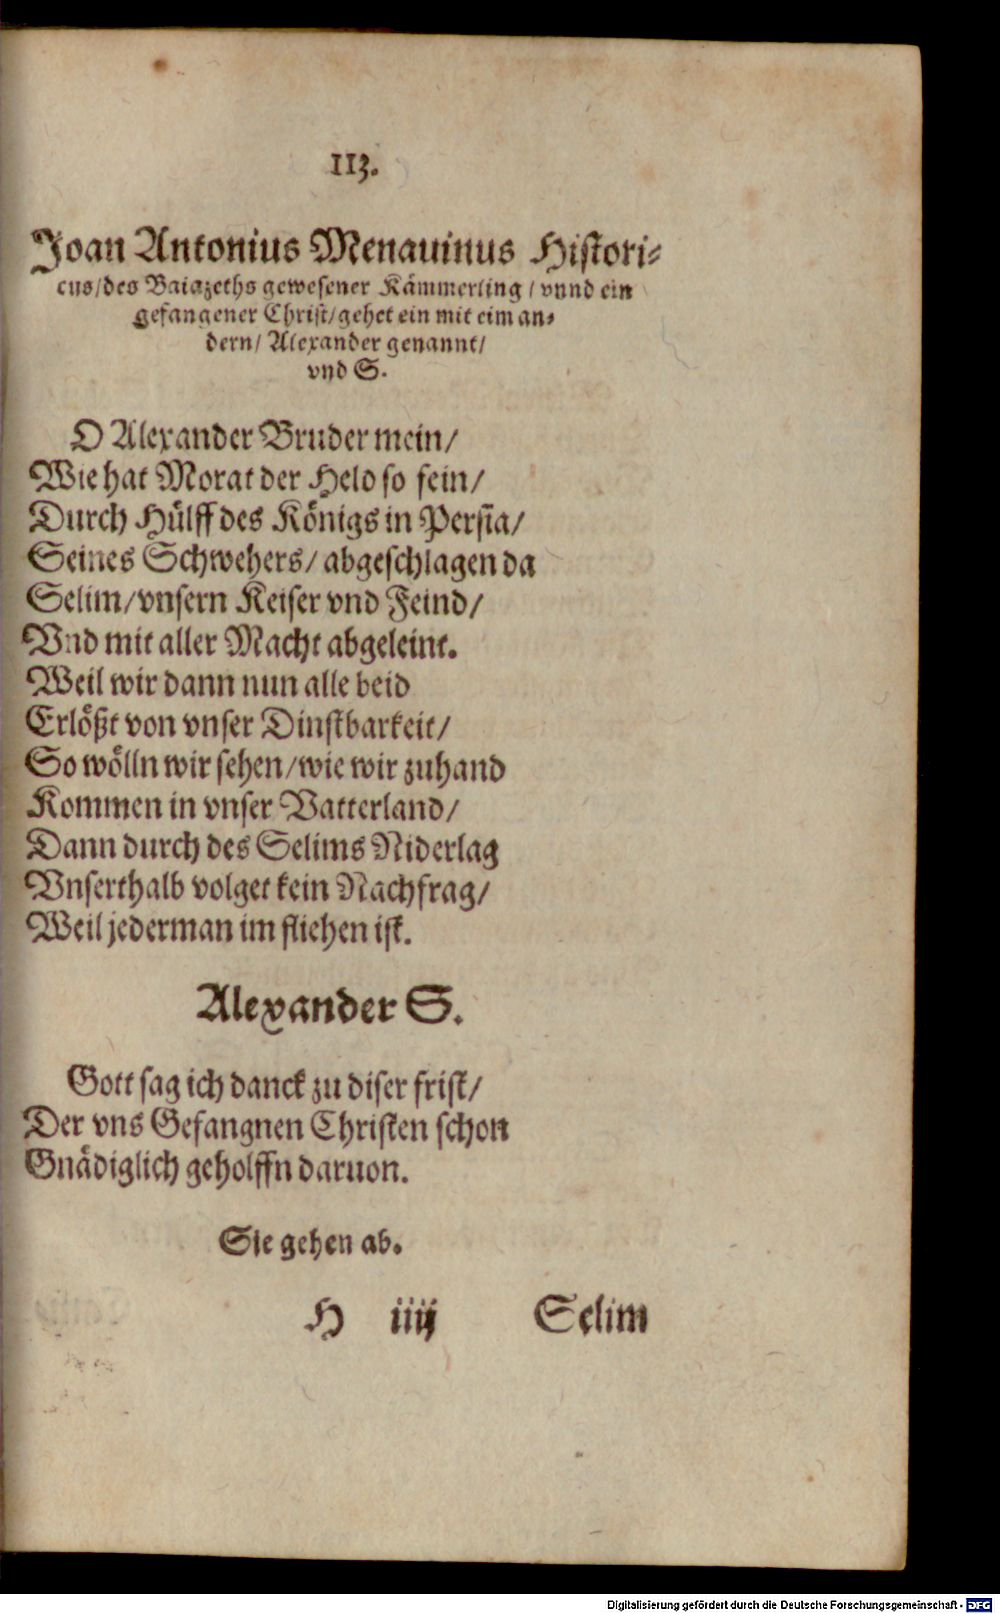 113.
Joan Antonius Menauinus Histori-
cus/des Baiazeths gewesener Kämmerling / vnnd ein
gefangener Christ/gehet ein mit eim an-
dern/ Alexander genannt/
vnd S.
O Alexander Bruder mein/
Wie hat Morat der Held so fein/
Durch Hülff des Königs in Persia/
Seines Schwehers/ abgeschlagen da
Selim/vnsern Keiser vnd Feind/
Vnd mit aller Macht abgeleint.
Weil wir dann nun alle beid
Erlößt von vnser Dinstbarkeit/
So wölln wir sehen/wie wir zuhand
Kommen in vnser Vatterland/
Dann durch des Selims Niderlag
Vnserthalb volget kein Nachfrag/
Weil jederman im fliehen ist.
Alexander S.
Gott sag ich danck zu diser frist/
Der vns Gefangnen Christen schon
Gnädiglich geholffn daruon.
Sie gehen ab.
H iiij Selim
Digitalisierung gefördert durch die Deutsche Forschungsgemeinschaft - DFG